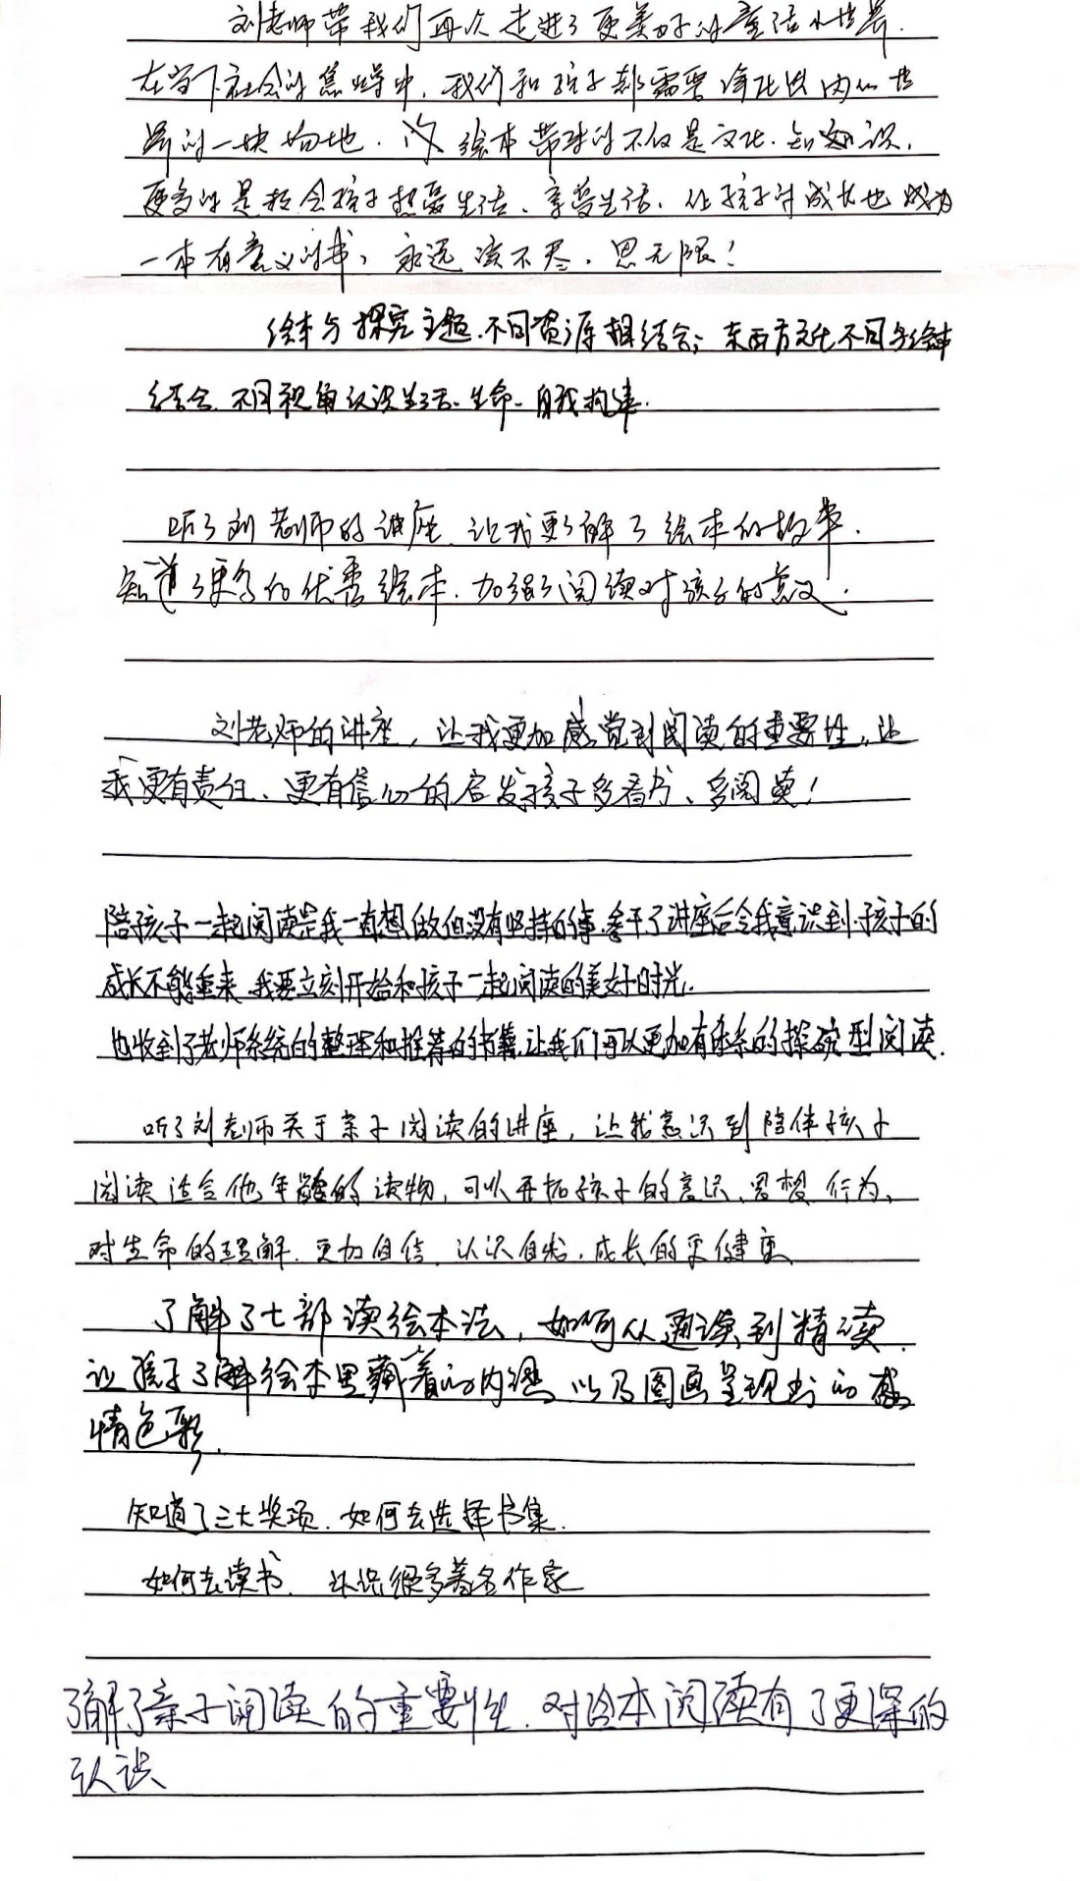 刘老师带我们再次走进了更美好的童话小世界.
在当下社会的焦虑中,我们和孩子都需要净化出内心世
界的一块场地.绘本带来的不仅是文化.知识,
更多的是教会孩子热爱生活、享受生活,让孩子的成长也成为
一本有意义的书,永远读不尽,思无限!
绘本与探究主题.不同资源相结合;东西方文化不同与绘本
结合.不同视角认识生活-生命-自我构建.
听了刘老师的讲座,让我更了解了绘本的故事.
知道了更多的优秀绘本.加强了阅读对孩子的意义.
刘老师的讲座,让我更加感觉到阅读的重要性,让
我更有责任、更有信心的启发孩子多看书、多阅读!
陪孩子一起阅读是我一直想做但没有坚持的事.参干了讲座后令我意识到孩子的
成长不能重来 我要立刻开始和孩子一起阅读的美好时光.
也收到了老师系统的整理和推荐的书籍,让我们可以更加有体系的探究型阅读.
听了刘老师关于亲子阅读的讲座,让我意识到陪伴孩子
阅读适合他年龄的读物,可以开拓孩子的意识、思想、行为、
对生命的理解.更加自信,认识自己,成长的更健康
了解了七部读绘本法,如何从通读到精读.
让孩子了解绘本里藏着的内涵 以及图画呈现出的感
情色彩.
知道了三大奖项.如何去选择书集.
如何去读书. 认识很多著名作家
了解了亲子阅读的重要性.对绘本阅读有了更深的
认识